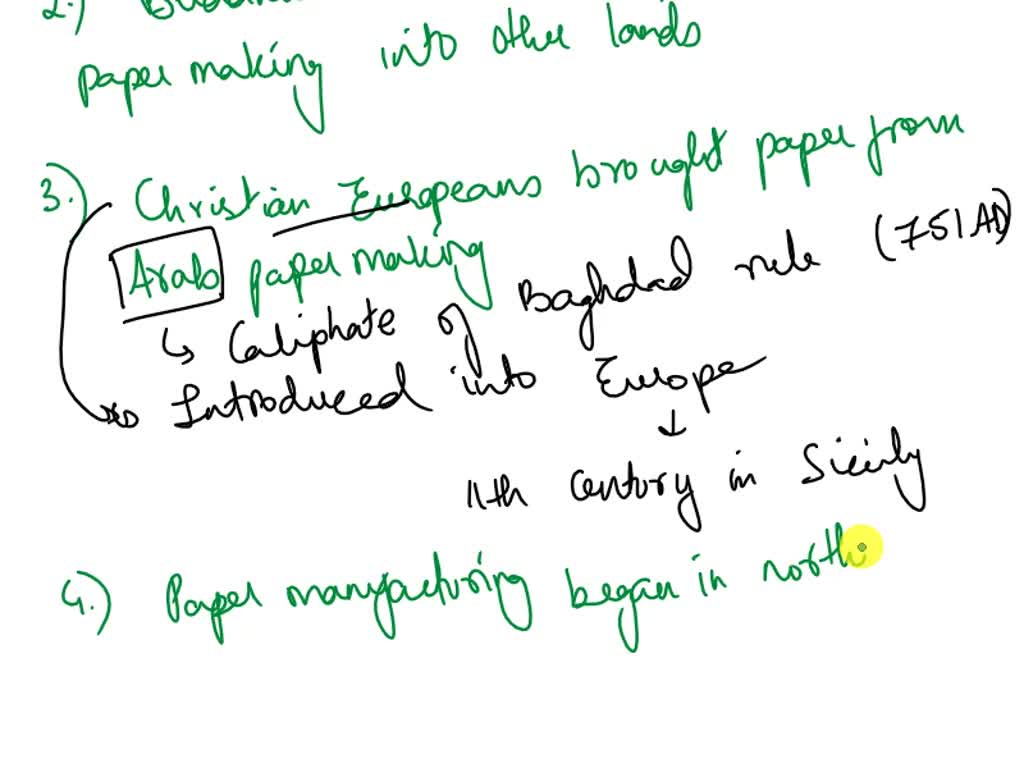 2.)
paper making into other lands
3.) Christian Europeans brought paper from
Arab paper making
↳ Caliphate of Baghdad rule (751 AD)
Introduced into Europe
↓
11th century in Sicily
4.) Paper manufacturing began in north